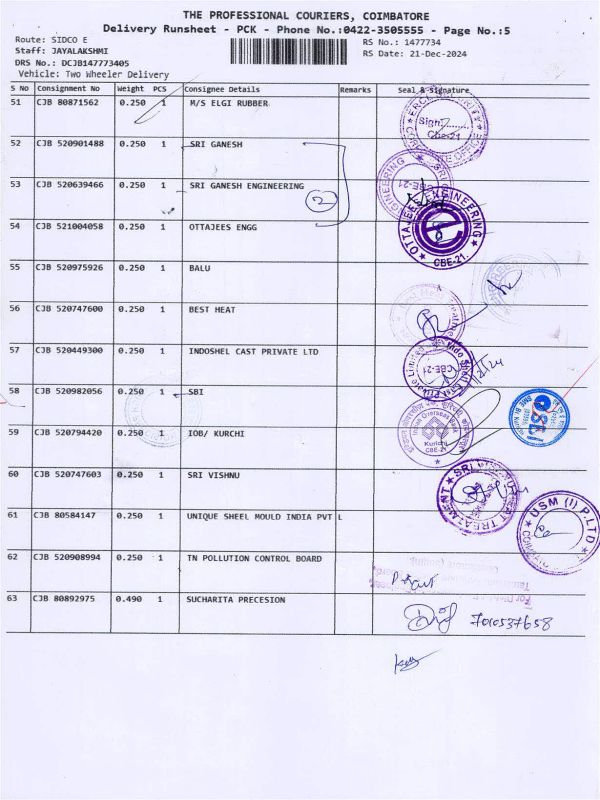 THE PROFESSIONAL COURIERS, COIMBATORE
Delivery Runsheet - PCK - Phone No.:0422-3505555 - Page No.:5
Route: SIDCO E
RS No.: 1477734
Staff: JAYALAKSHMI
RS Date: 21-Dec-2024
DRS No.: DCJB147773405
Vehicle: Two Wheeler Delivery
S No Consignment No Weight PCS Consignee Details Remarks Seal & Signature
51 CJB 80871562 0.250 1 M/S ELGI RUBBER
52 CJB 520901488 0.250 1 SRI GANESH
53 CJB 520639466 0.250 1 SRI GANESH ENGINEERING
2
54 CJB 521004058 0.250 1 OTTAJEES ENGG
OTTAJEES ENGINEERING
CBE-21.
55 CJB 520975926 0.250 1 BALU
56 CJB 520747600 0.250 1 BEST HEAT
57 CJB 520449300 0.250 1 INDOSHEL CAST PRIVATE LTD
CBE-21
58 CJB 520982056 0.250 1 SBI
59 CJB 520794420 0.250 1 IOB/ KURCHI
Indian Overseas Bank
Kurichi
CBE-21
60 CJB 520747603 0.250 1 SRI VISHNU
61 CJB 80584147 0.250 1 UNIQUE SHEEL MOULD INDIA PVT L
USM (I) P.LTD
62 CJB 520908994 0.250 1 TN POLLUTION CONTROL BOARD
63 CJB 80892975 0.490 1 SUCHARITA PRECESION
7010537658